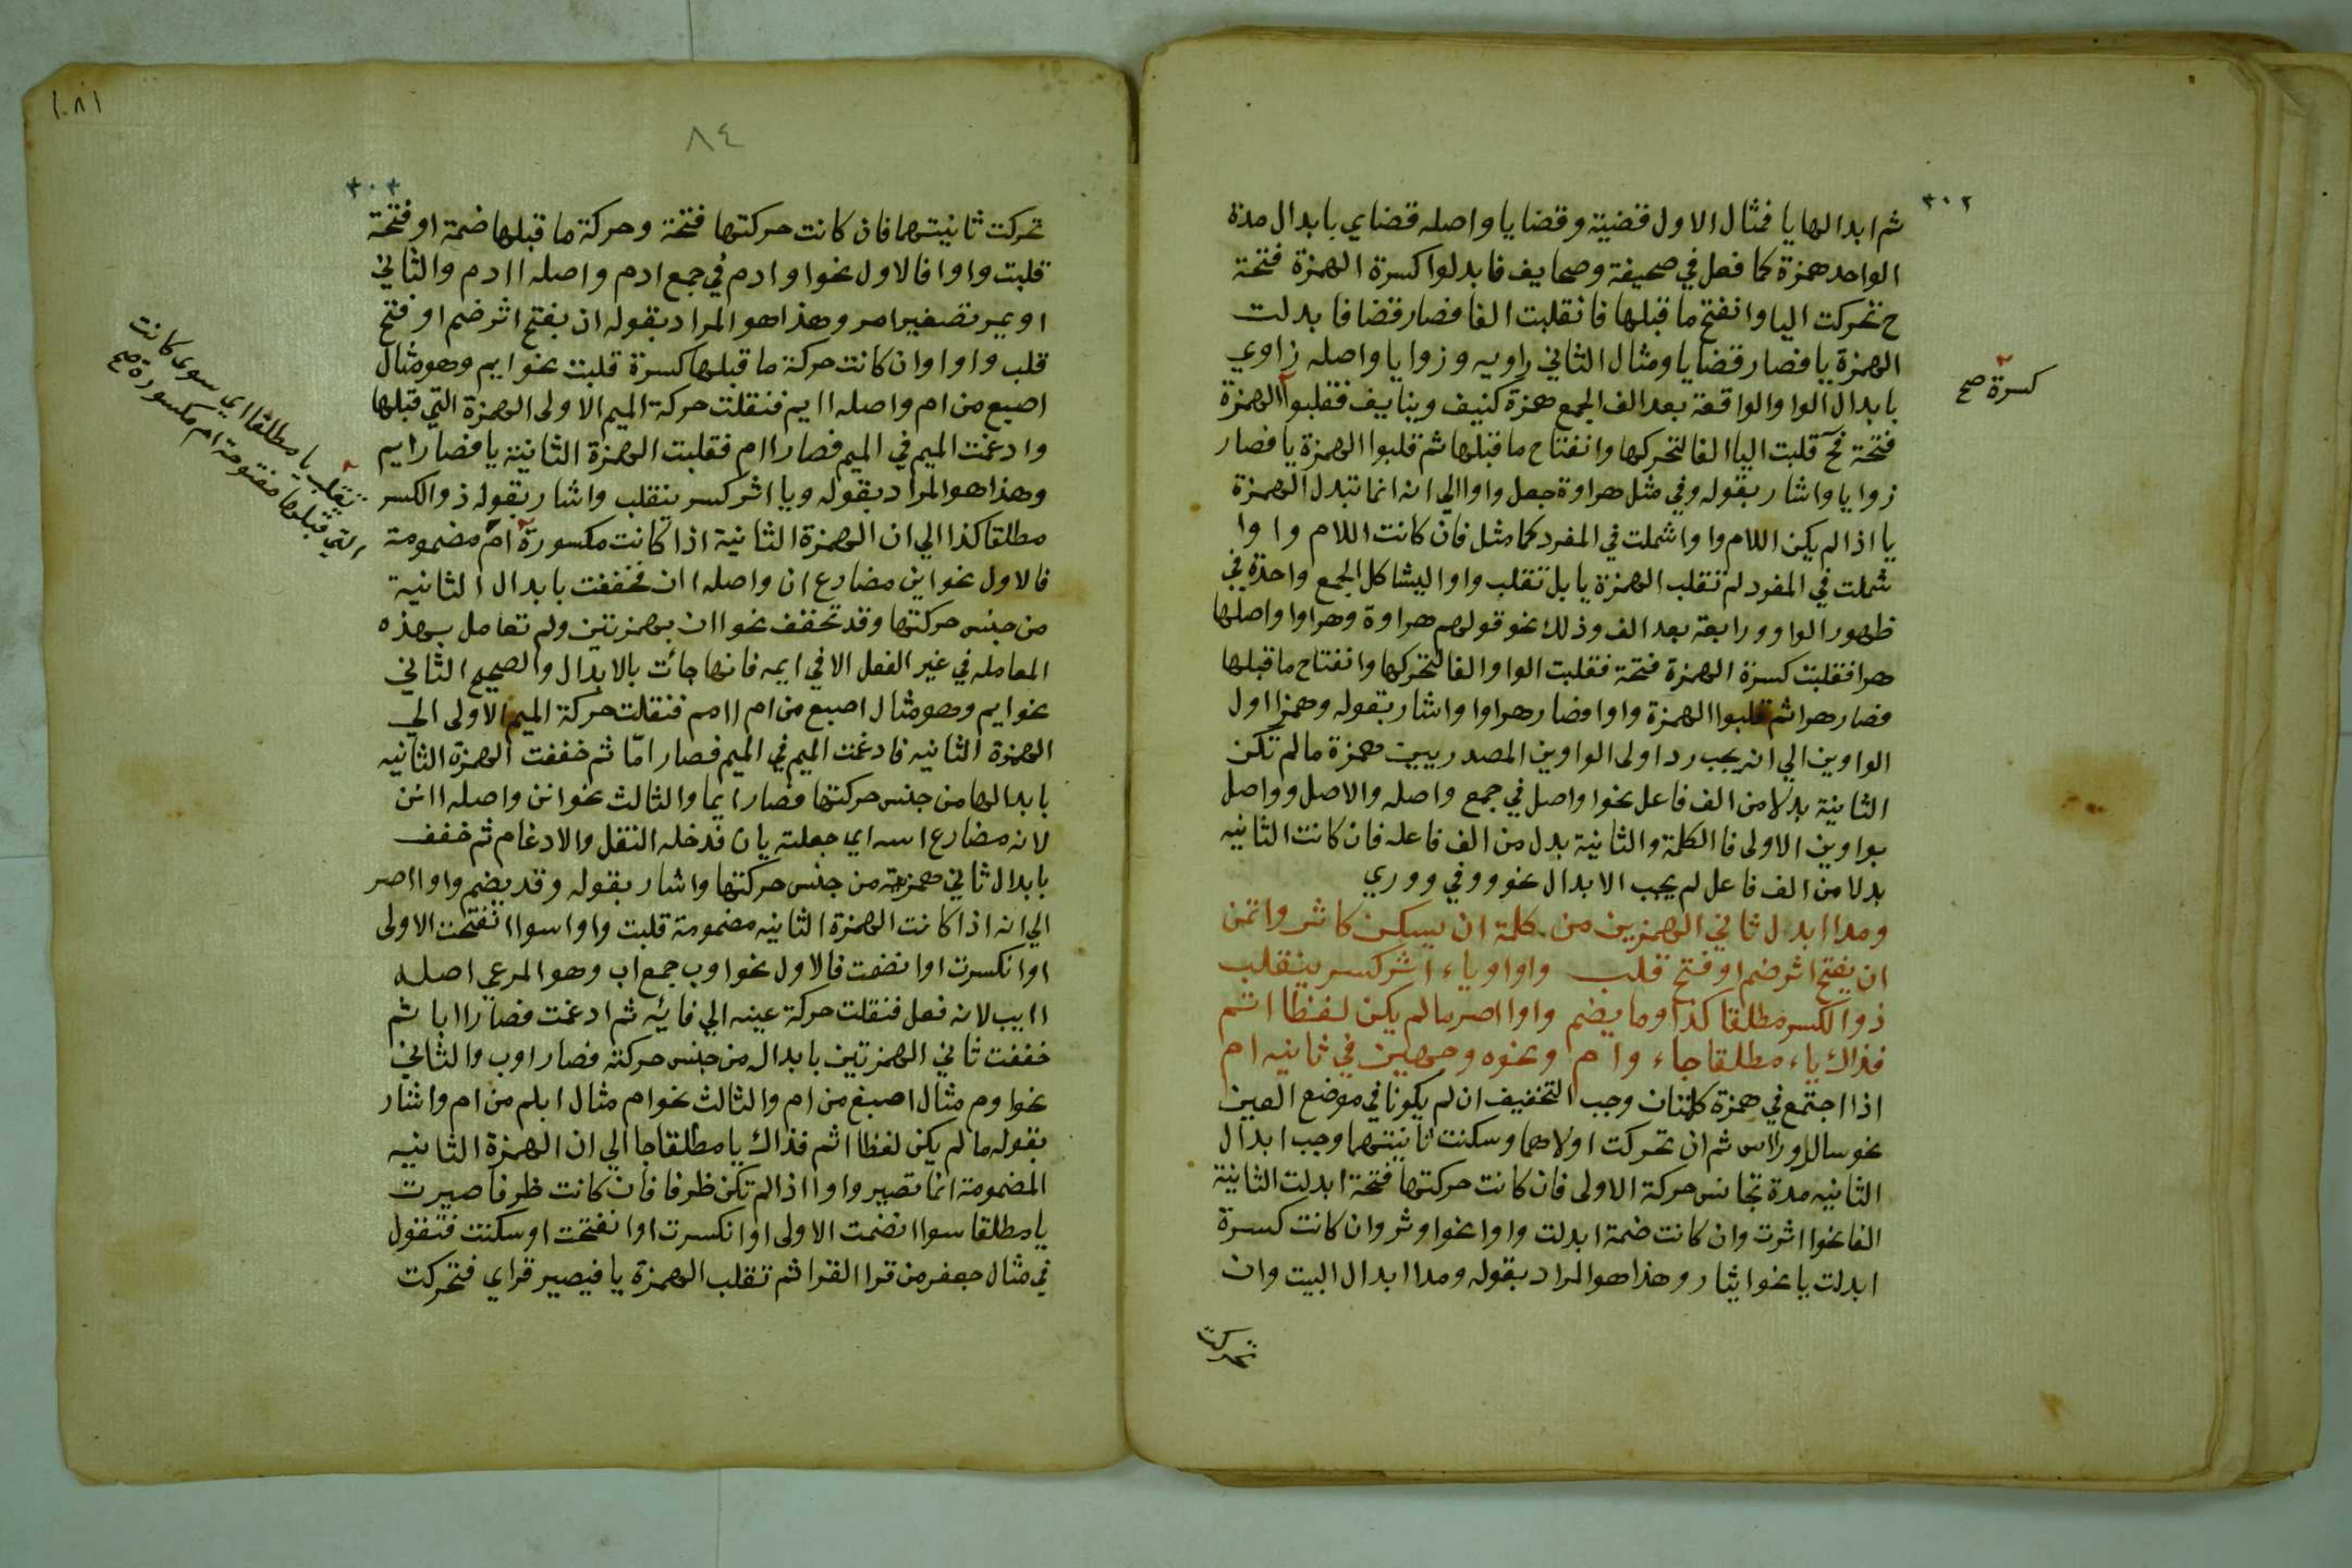 ٣٠٢
ثم ابدالها يا فمثال الاول قضية وقضايا واصله قضاي بابدال مدة
الواحد همزة كما فعل في صحيفة وصحايف فابدلوا كسرة الهمزة فتحة
ح تحركت اليا وانفتح ما قبلها فانقلبت الفا فصار قضا فابدلت
الهمزة يا فصار قضايا ومثال الثاني راويه وزوايا واصله زاوي
بابدال الواو الواقعة بعد الف الجمع همزة كنيف وينايف فقلبوا الهمزة
كسرة صح
فتحة فح قلبت اليا الفا لتحركها وانفتاح ما قبلها ثم قلبوا الهمزة يا فصار
زوايا واشار بقوله وفي مثل هراوة جعل واوا الي انه انما تبدل الهمزة
يا اذا لم يكن اللام واوا شملت في المفرد كما مثل فان كانت اللام واوا
شملت في المفرد لم تقلب الهمزة يا بل تقلب واوا ليشاكل الجمع واحده في
ظهور الواو ورابعة بعد الف وذلك نحو قولهم هراوة وهراوا واصلها
هرا فقلبت كسرة الهمزة فتحة فقلبت الواو الفا لتحركها وانفتاح ما قبلها
فصار هرا ثم قلبوا الهمزة واوا فصار هراوا واشار بقوله وهمزا اول
الواوين الي انه يجب رد اولى الواوين المصدريين همزة ما لم تكن
الثانية بدلا من الف فاعل نحو اواصل في جمع واصله والاصل وواصل
بواوين الاولى فا الكلمة والثانية بدل من الف فاعله فان كانت الثانيه
بدلا من الف فاعل لم يجب الابدال نحو ووفي ووري
ومدا ابدل ثاني الهمزين من كلمة ان يسكن كاثر واتمن
ان يفتح اثر ضم او فتح قلب واوا وياء اثر كسر ينقلب
ذو الكسر مطلقا كذا وما يضم واوا اصر ما لم يكن لفظا اتم
فذاك ياء مطلقا جاء وام ونحوه وجهين في ثانيه ام
اذا اجتمع في همزة كلمتان وجب التخفيف ان لم يكونا في موضع العين
نحو سال وراس ثم ان تحركت اولاهما وسكنت ثانيتهما وجب ابدال
الثانيه مدة تجانس حركة الاولى فان كانت حركتها فتحة ابدلت الثانية
الفا نحو اثرت وان كانت ضمة ابدلت واوا نحو اوثر وان كانت كسرة
ابدلت يا نحو ايثار وهذا هو المراد بقوله ومدا ابدال البيت وان
تحركت
١٠٨١
٨٤
٣٠٣
تحركت ثانيتهما فان كانت حركتها فتحة وحركة ما قبلها ضمة او فتحة
قلبت واوا فالاول نحو اوادم في جمع ادم واصله اادم والثاني
اويمر تصغير امر وهذا هو المراد بقوله ان يفتح اثر ضم او فتح
قلب واوا وان كانت حركة ما قبلها كسرة قلبت نحو ايم وهو مثال
اصبع من ام واصله اايم فنقلت حركة الميم الاولى الهمزة التي قبلها
وادغمت الميم في الميم فصار اام فقلبت الهمزة الثانية يا فصار ايم
وهذا هو المراد بقوله ويا اثر كسر ينقلب واشار بقوله ذو الكسر
مطلقا كذا الي ان الهمزة الثانية اذا كانت مكسورة ام مضمومة
تنقلب يا مطلقا اي سوى كانت
التي قبلها مفتوحة ام مكسورة صح
فالاول نحو اين مضارع ان واصله اان فخففت بابدال الثانية
من جنس حركتها وقد تخفف نحو اان بهمزتين ولم تعامل بهذه
المعامله في غير الفعل الا في ايمه فانها جائت بالابدال والصحيح الثاني
نحو ايم وهو مثال اصبع من ام اامم فنقلت حركة الميم الاولى الي
الهمزة الثانيه فادغمت الميم في الميم فصار امّا ثم خففت الهمزة الثانيه
بابدالها من جنس حركتها فصار ايما والثالث نحو انن واصله اانن
لانه مضارع اسه اي جعلته يان فدخله النقل والادغام ثم خفف
بابدال ثاني همزيه من جنس حركتها واشار بقوله وقد يضم واوا اصر
الي انه اذا كانت الهمزة الثانيه مضمومة قلبت واوا سوا انفتحت الاولى
او انكسرت او انضمت فالاول نحو اوب جمع اب وهو المرعي اصله
اابيب لانه فعل فنقلت حركة عينه الي فائه ثم ادغمت فصار اابا ثم
خففت ثاني الهمزتين بابدال من جنس حركته فصار اوب والثاني
نحو اوم مثال اصبع من ام والثالث نحو ام مثال ابلم من ام واشار
بقوله ما لم يكن لفظا اتم فذاك يا مطلقا جا الي ان الهمزة الثانيه
المضمومة انما تصير واوا اذا لم تكن ظرفا فان كانت ظرفا صيرت
يا مطلقا سوا انضمت الاولى او انكسرت او انفتحت او سكنت فتقول
في مثال جعفر من قرا القرا ثم تقلب الهمزة يا فيصير قراي فتحركت